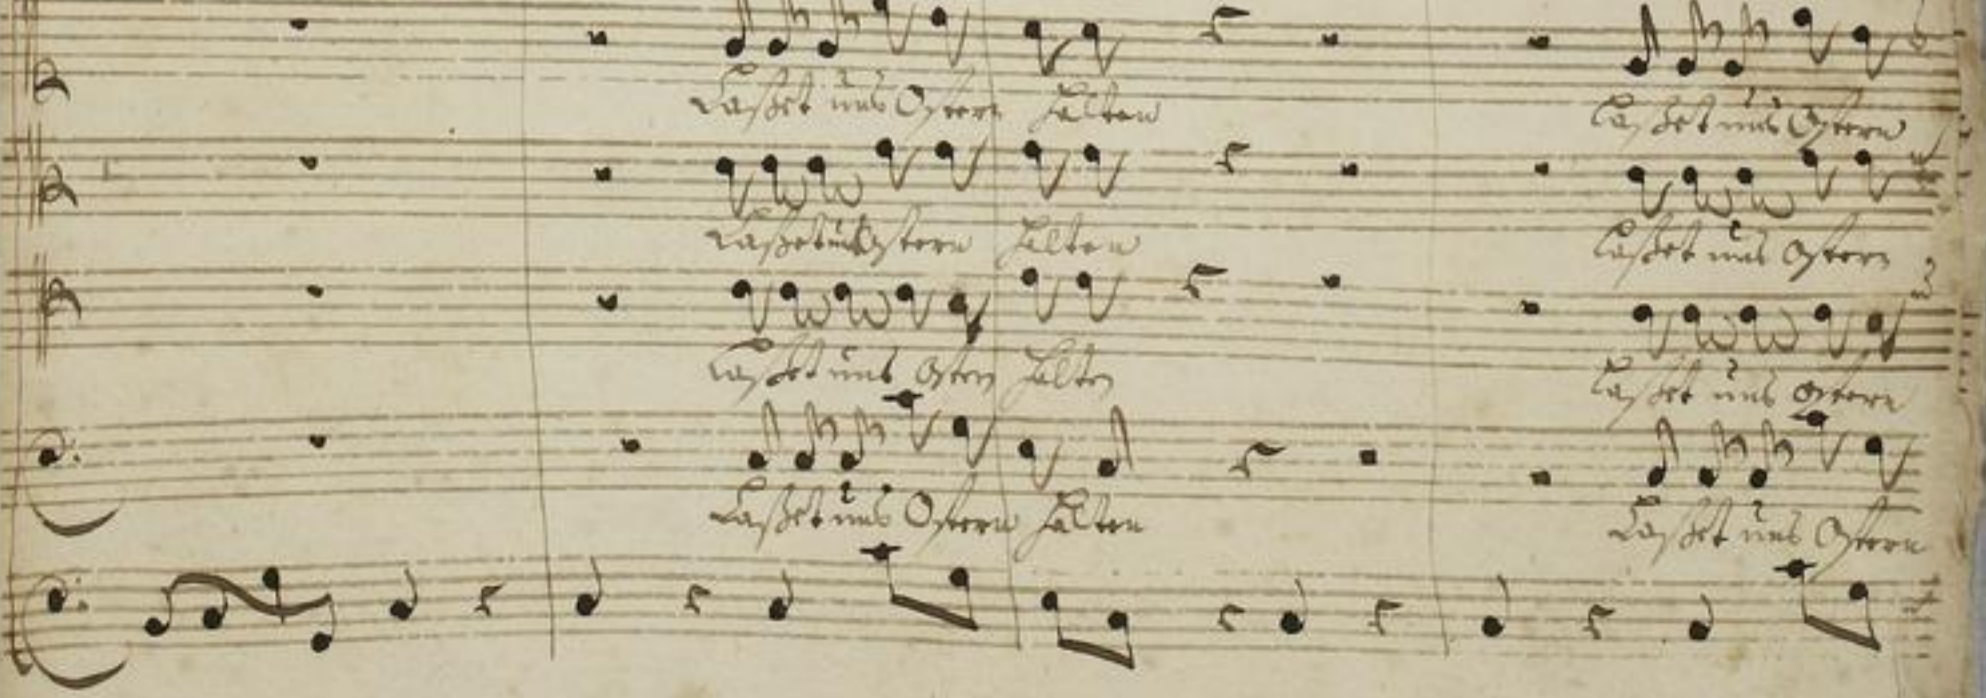 Laßet uns Ostern halten Laßet uns Ostern
Laßet uns Ostern halten Laßet uns Ostern
Laßet uns Ostern halten Laßet uns Ostern
Laßet uns Ostern halten Laßet uns Ostern